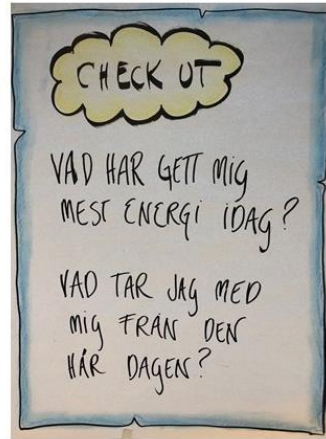 CHECK UT
VAD HAR GETT MIG
MEST ENERGI IDAG?
VAD TAR JAG MED
MIG FRÅN DEN
HÄR DAGEN?